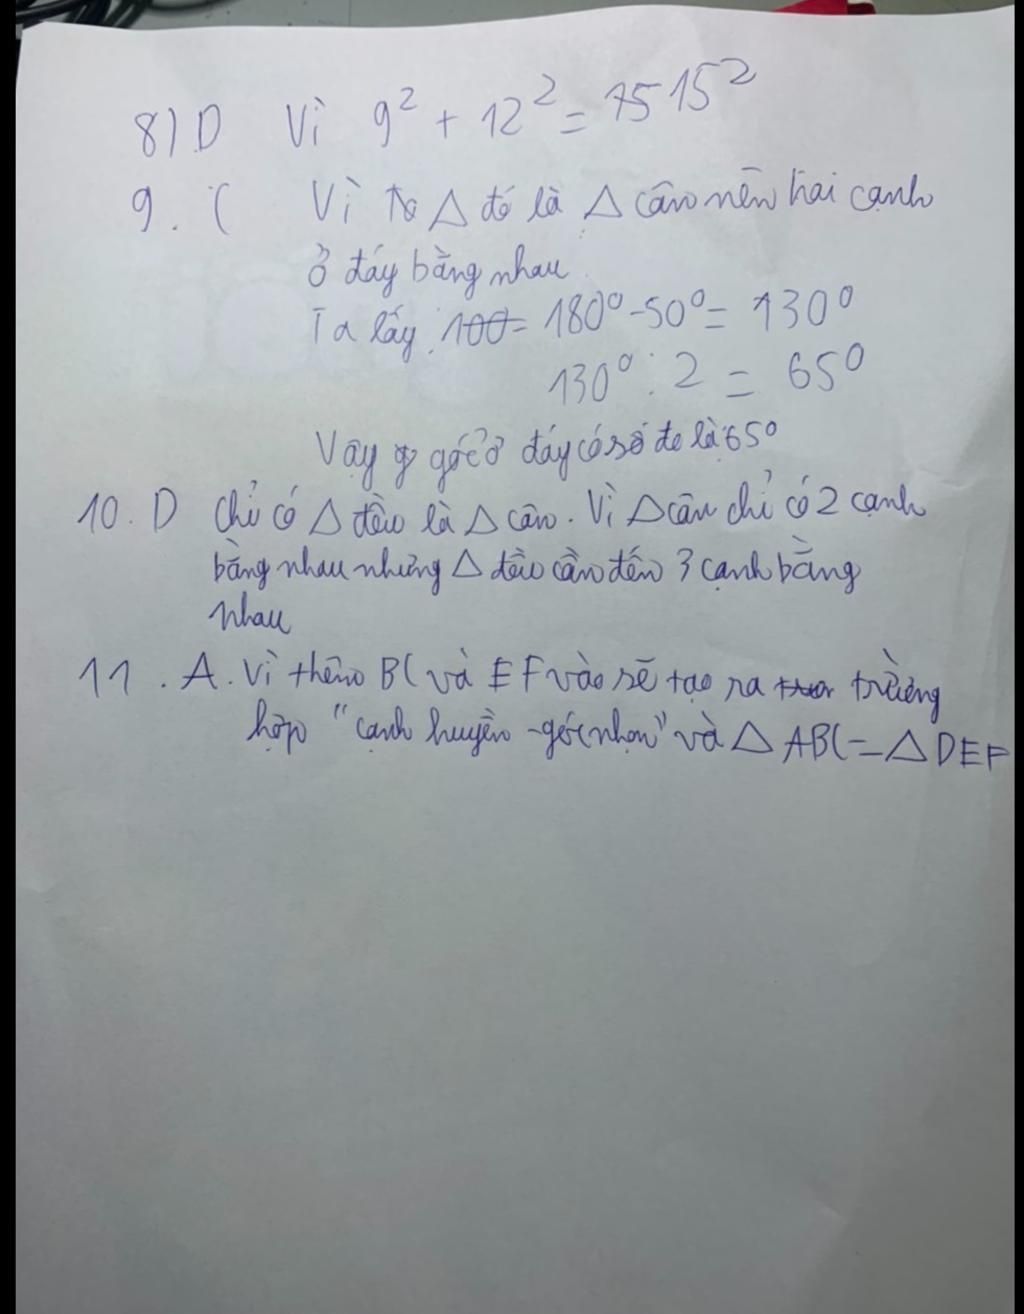 8) D Vì 9² + 12² = 15²
9. C Vì △ đó là △ cân nên hai cạnh
ở đáy bằng nhau
Ta lấy: 100= 180° - 50° = 130°
130° : 2 = 65°
Vậy góc ở đáy có số đo là 65°
10. D Chỉ có △ đều là △ cân. Vì △ cân chỉ có 2 cạnh
bằng nhau nhưng △ đều cần đến 3 cạnh bằng
nhau
11. A. Vì thêm BC và EF vào sẽ tạo ra trường
hợp "cạnh huyền - góc nhọn" và △ ABC = △ DEF